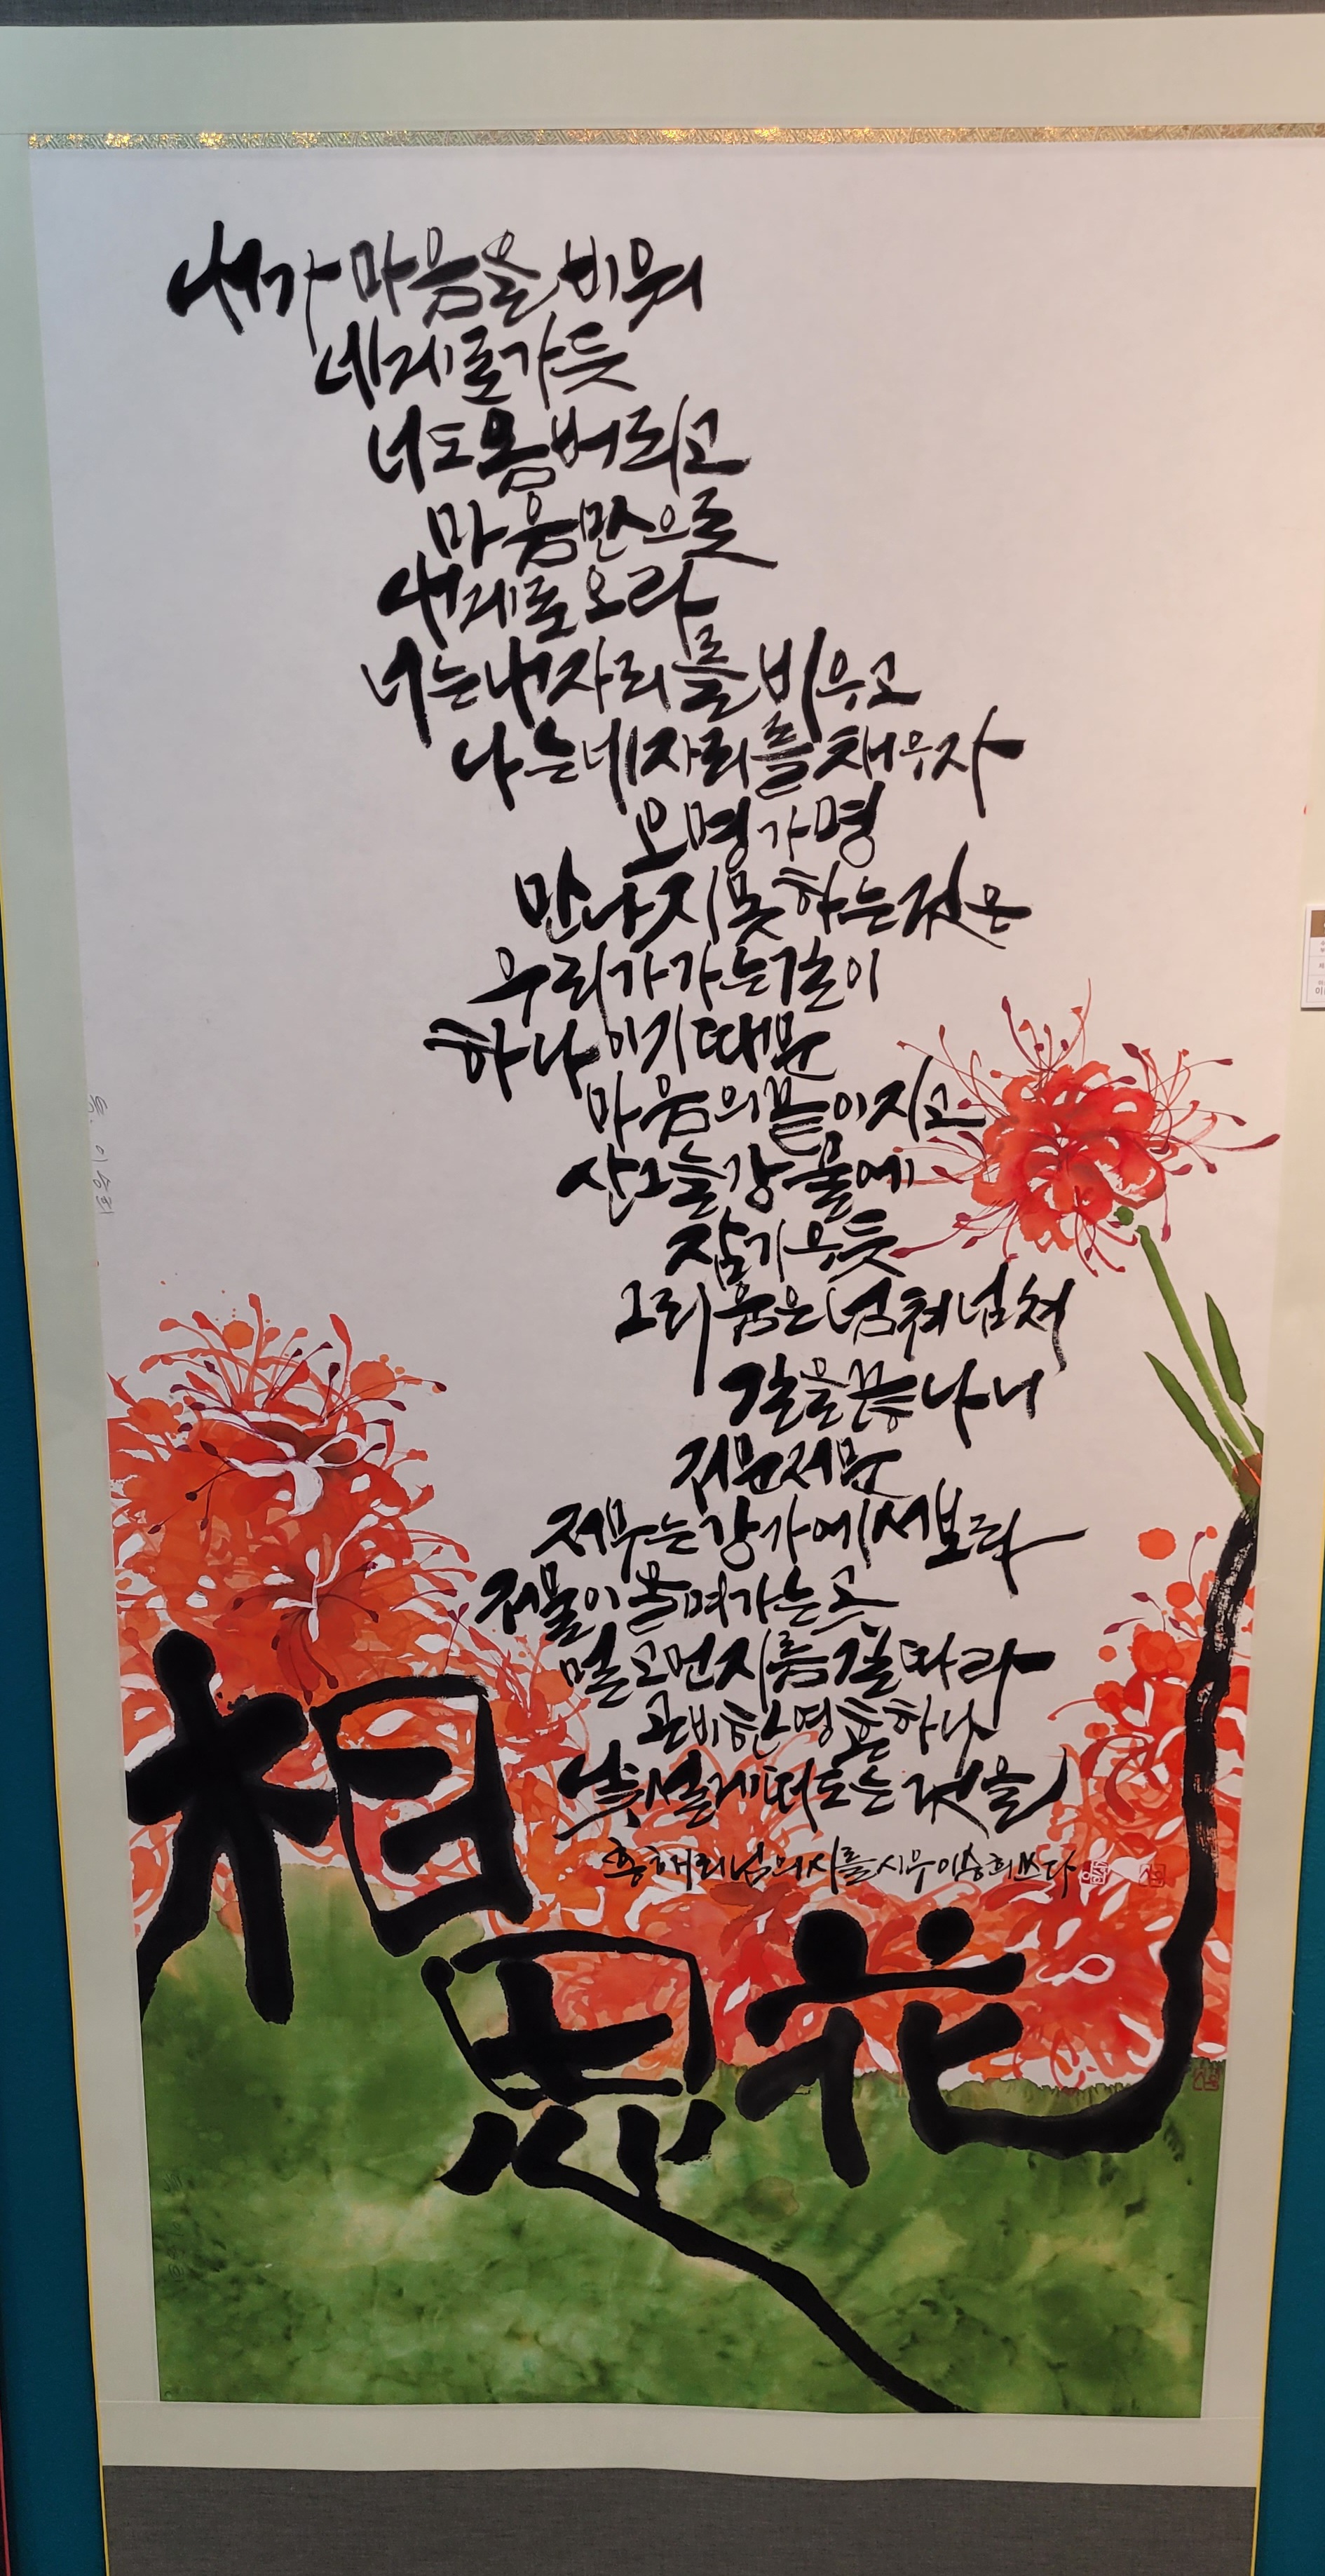 내가 마음을 비워
네게로 가듯
너도 몸 버리고
마음만으로
내게로 오라
너는 내 자리를 비우고
나는 네 자리를 채우자
오명가명
만나지 못하는 것은
우리가 가는 길이
하나이기 때문
마음의 끝이 지고
산그늘 강물에
잠기우듯
그리움은 넘쳐 넘쳐
길을 끊나니
저문저문
저무는 강가에서 보라
저 물이 울며 가는 곳
멀고 먼 지름길 따라
곤비한 영혼 하나
낯설게 떠도는 것을
홍해리님의 시를 시우 이승희 쓰다
相思花